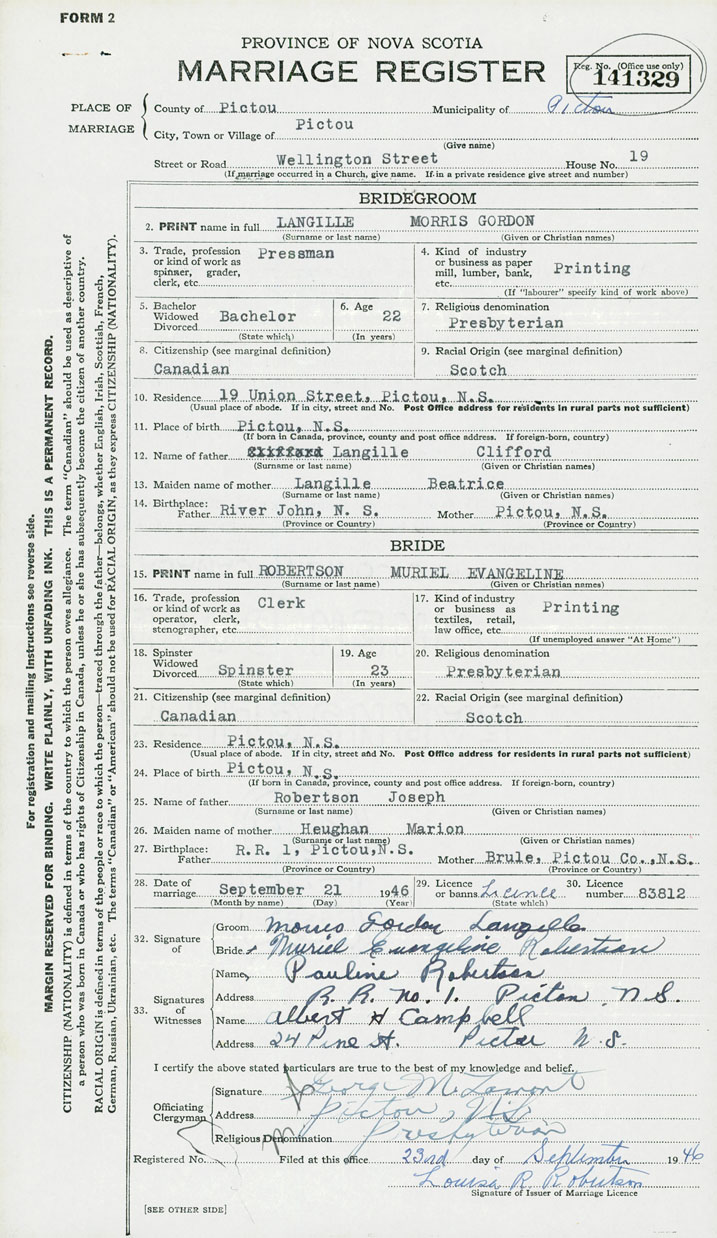 FORM 2
PROVINCE OF NOVA SCOTIA
MARRIAGE REGISTER
Reg. No. (Office use only)
141329
PLACE OF MARRIAGE
County of Pictou Municipality of Pictou
City, Town or Village of Pictou
(Give name)
Street or Road Wellington Street House No. 19
(If marriage occurred in a Church, give name. If in a private residence give street and number)
BRIDEGROOM
2. PRINT name in full LANGILLE MORRIS GORDON
(Surname or last name) (Given or Christian names)
3. Trade, profession or kind of work as spinner, grader, clerk, etc. Pressman
4. Kind of industry or business as paper mill, lumber, bank, etc. Printing
(If "labourer" specify kind of work above)
5. Bachelor Widowed Divorced Bachelor
(State which)
6. Age 22
(In years)
7. Religious denomination
Presbyterian
8. Citizenship (see marginal definition)
Canadian
9. Racial Origin (see marginal definition)
Scotch
10. Residence 19 Union Street, Pictou, N.S.
(Usual place of abode. If in city, street and No. Post Office address for residents in rural parts not sufficient)
11. Place of birth Pictou, N.S.
(If born in Canada, province, county and post office address. If foreign-born, country)
12. Name of father Clifford Langille Clifford
(Surname or last name) (Given or Christian names)
13. Maiden name of mother Langille Beatrice
(Surname or last name) (Given or Christian names)
14. Birthplace: Father River John, N. S. Mother Pictou, N.S.
(Province or Country) (Province or Country)
BRIDE
15. PRINT name in full ROBERTSON MURIEL EVANGELINE
(Surname or last name) (Given or Christian names)
16. Trade, profession or kind of work as operator, clerk, stenographer, etc. Clerk
17. Kind of industry or business as textiles, retail, law office, etc. Printing
(If unemployed answer "At Home")
18. Spinster Widowed Divorced Spinster
(State which)
19. Age 23
(In years)
20. Religious denomination
Presbyterian
21. Citizenship (see marginal definition)
Canadian
22. Racial Origin (see marginal definition)
Scotch
23. Residence Pictou, N.S.
(Usual place of abode. If in city, street and No. Post Office address for residents in rural parts not sufficient)
24. Place of birth Pictou, N.S.
(If born in Canada, province, county and post office address. If foreign-born, country)
25. Name of father Robertson Joseph
(Surname or last name) (Given or Christian names)
26. Maiden name of mother Heughan Marion
(Surname or last name) (Given or Christian names)
27. Birthplace: Father R.R. 1, Pictou,N.S. Mother Brule, Pictou Co.,N.S.
(Province or Country) (Province or Country)
28. Date of marriage September 21 1946
(Month by name) (Day) (Year)
29. Licence or banns Licence
(State which)
30. Licence number 83812
32. Signature of
Groom Morris Gordon Langille
Bride Muriel Evangeline Robertson
33. Signatures of Witnesses
Name Pauline Robertson
Address R. R. No. 1. Pictou, N.S.
Name Albert H Campbell
Address 24 Pine St. Pictou N.S.
I certify the above stated particulars are true to the best of my knowledge and belief.
Officiating Clergyman
Signature George M. Lamont
Address Pictou, N.S.
Religious Denomination Presbyterian
Registered No. Filed at this office 23rd day of September 1946
Louisa R. Robertson
Signature of Issuer of Marriage Licence
[SEE OTHER SIDE]
For registration and mailing instructions see reverse side.
MARGIN RESERVED FOR BINDING. WRITE PLAINLY, WITH UNFADING INK. THIS IS A PERMANENT RECORD.
CITIZENSHIP (NATIONALITY) is defined in terms of the country to which the person owes allegiance. The term "Canadian" should be used as descriptive of
a person who was born in Canada or who has rights of Citizenship in Canada, unless he or she has subsequently become the citizen of another country.
RACIAL ORIGIN is defined in terms of the people or race to which the person—traced through the father—belongs, whether English, Irish, Scottish, French,
German, Russian, Ukrainian, etc. The terms "Canadian" or "American" should not be used for RACIAL ORIGIN, as they express CITIZENSHIP (NATIONALITY).